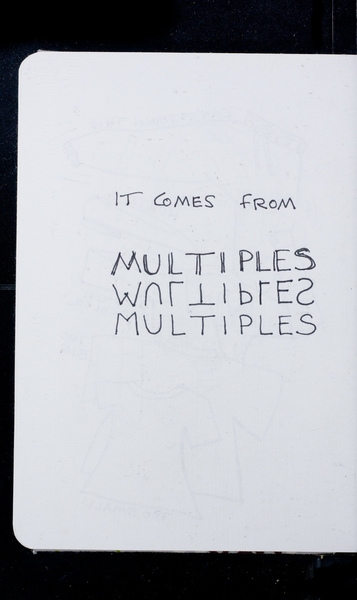 IT COMES FROM
MULTIPLES
MULTIPLES
MULTIPLES